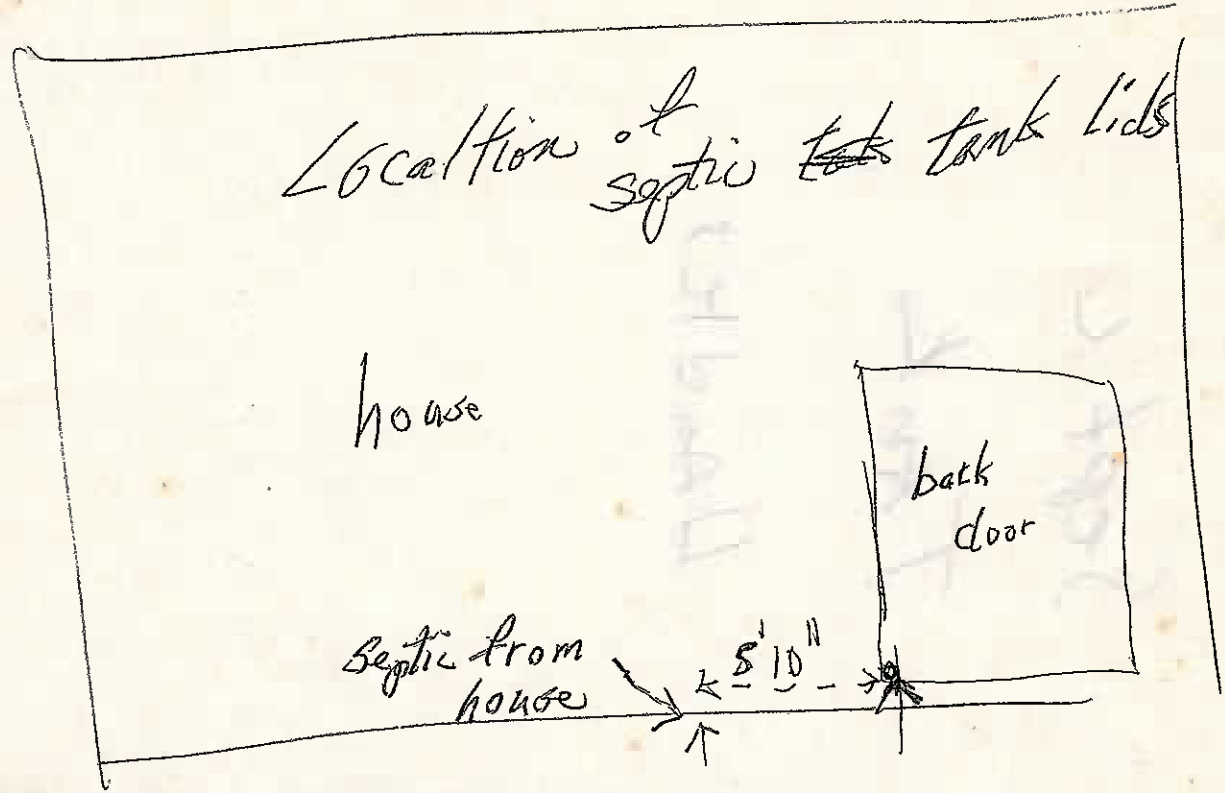 Localtion of
septic tank lids
house
back
door
septic from
house
5' 10"